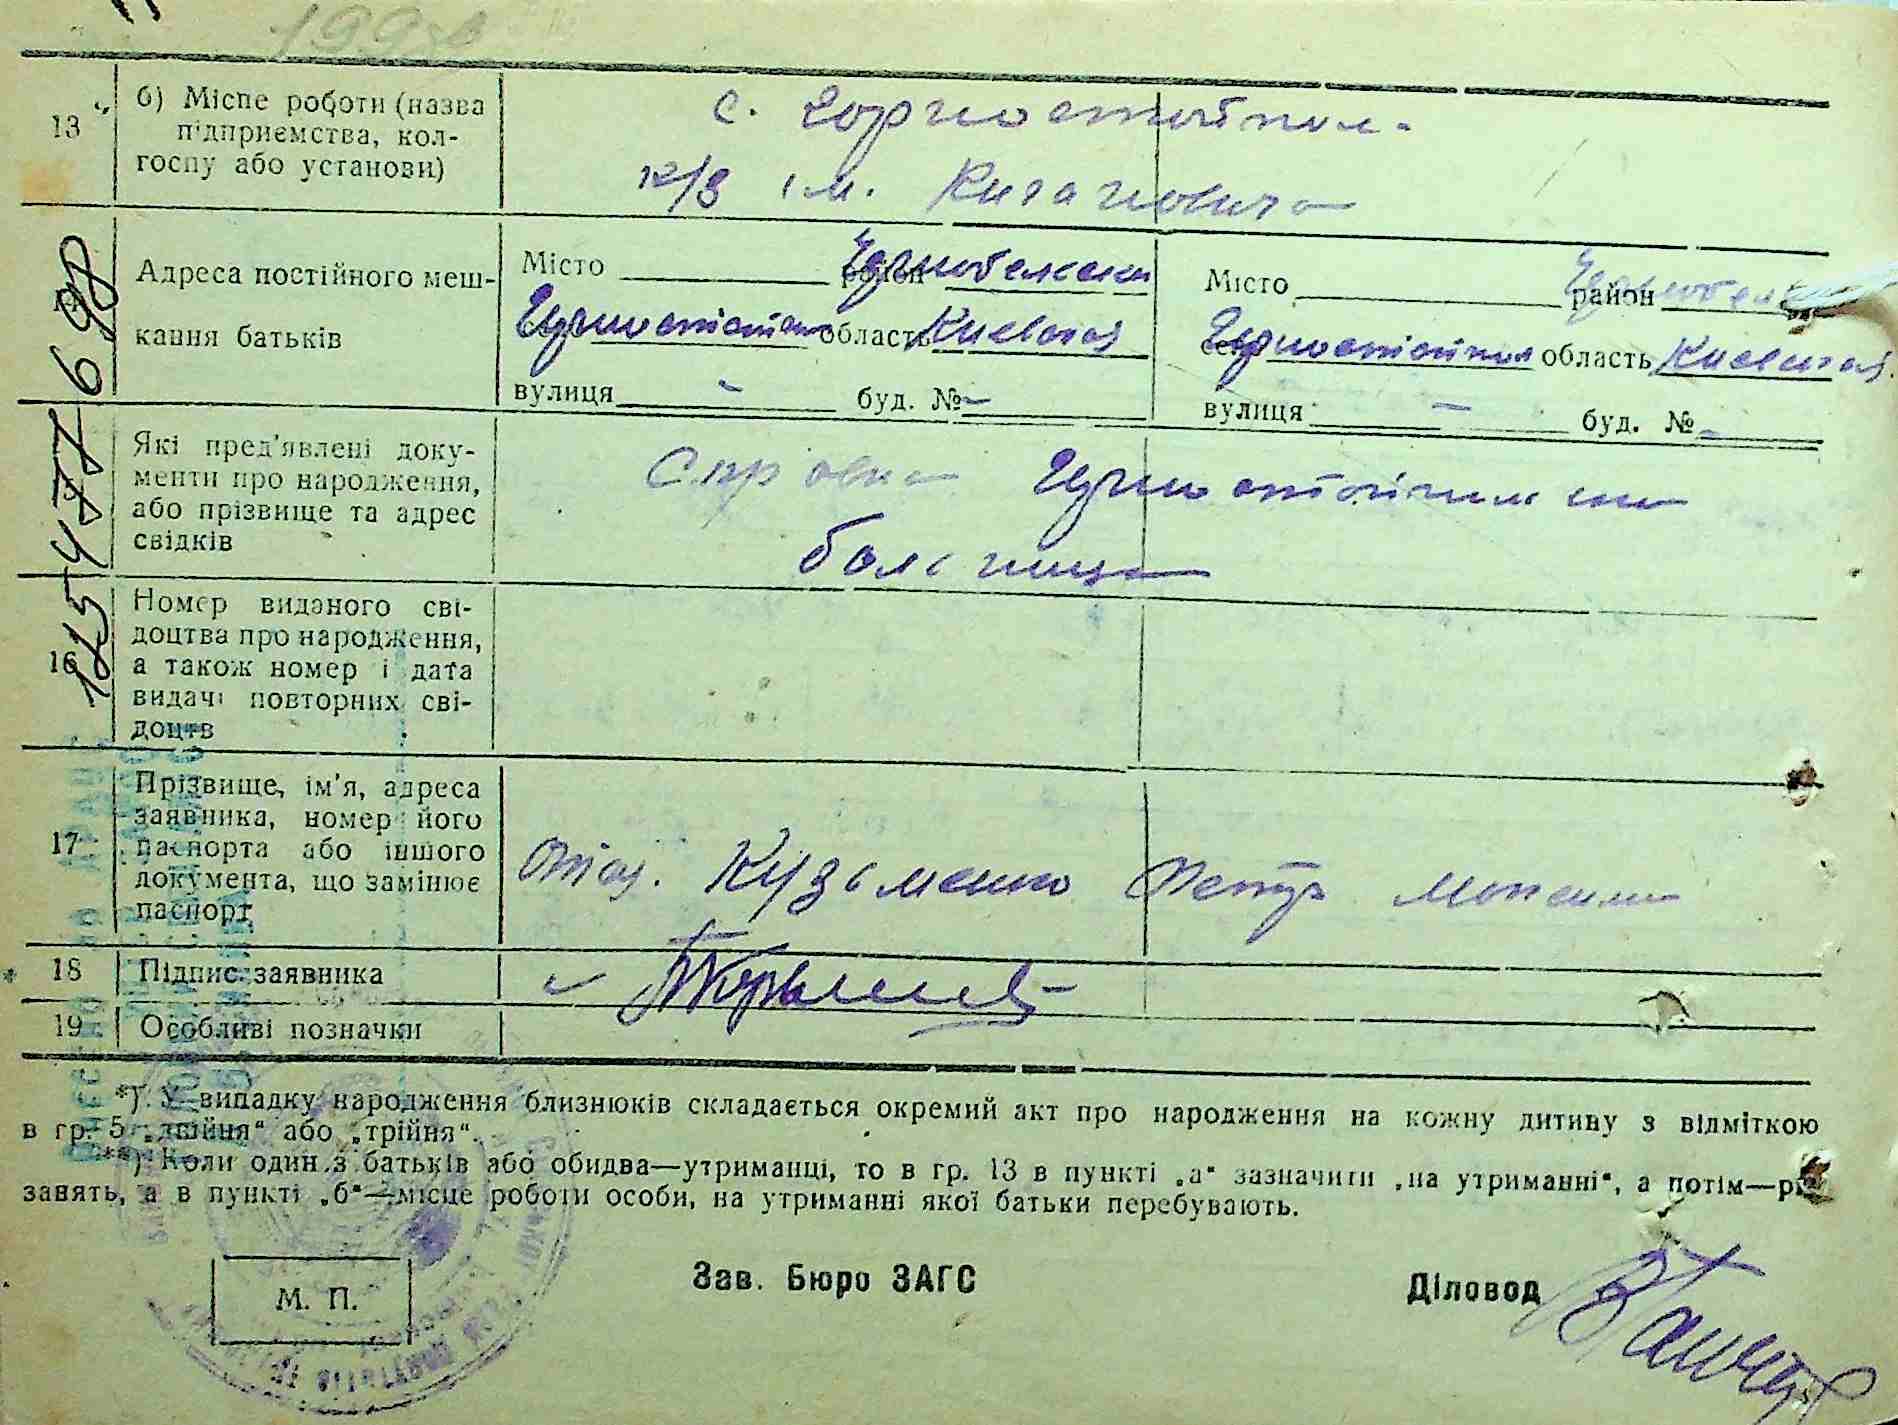 13
б) Місце роботи (назва
підприємства, кол-
госпу або установи)
с. Горностайпол-
к/з ім. Кагановича
Адреса постійного меш-
кання батьків
Місто район Чернобельски
Горностайпол область Киевская
вулиця - буд. № -
Місто район
Горностайпол область Киевская
вулиця - буд. № -
Які пред'явлені доку-
менти про народження,
або прізвище та адрес
свідків
Справка
больница
16
Номер виданого сві-
доцтва про народження,
а також номер і дата
видачі повторних сві-
доцтв
17
Прізвище, ім'я, адреса
заявника, номер його
паспорта або іншого
документа, що замінює
паспорт
Отец. Кузьменко Петр
18
Підпис заявника
19
Особливі позначки
*) У випадку народження близнюків складається окремий акт про народження на кожну дитину з відміткою
в гр. 5 „двійня“ або „трійня“.
**) Коли один з батьків або обидва—утриманці, то в гр. 13 в пункті „а“ зазначити „на утриманні“, а потім—рід
занять, а в пункті „б“—місце роботи особи, на утриманні якої батьки перебувають.
М. П.
Зав. Бюро ЗАГС
Діловод